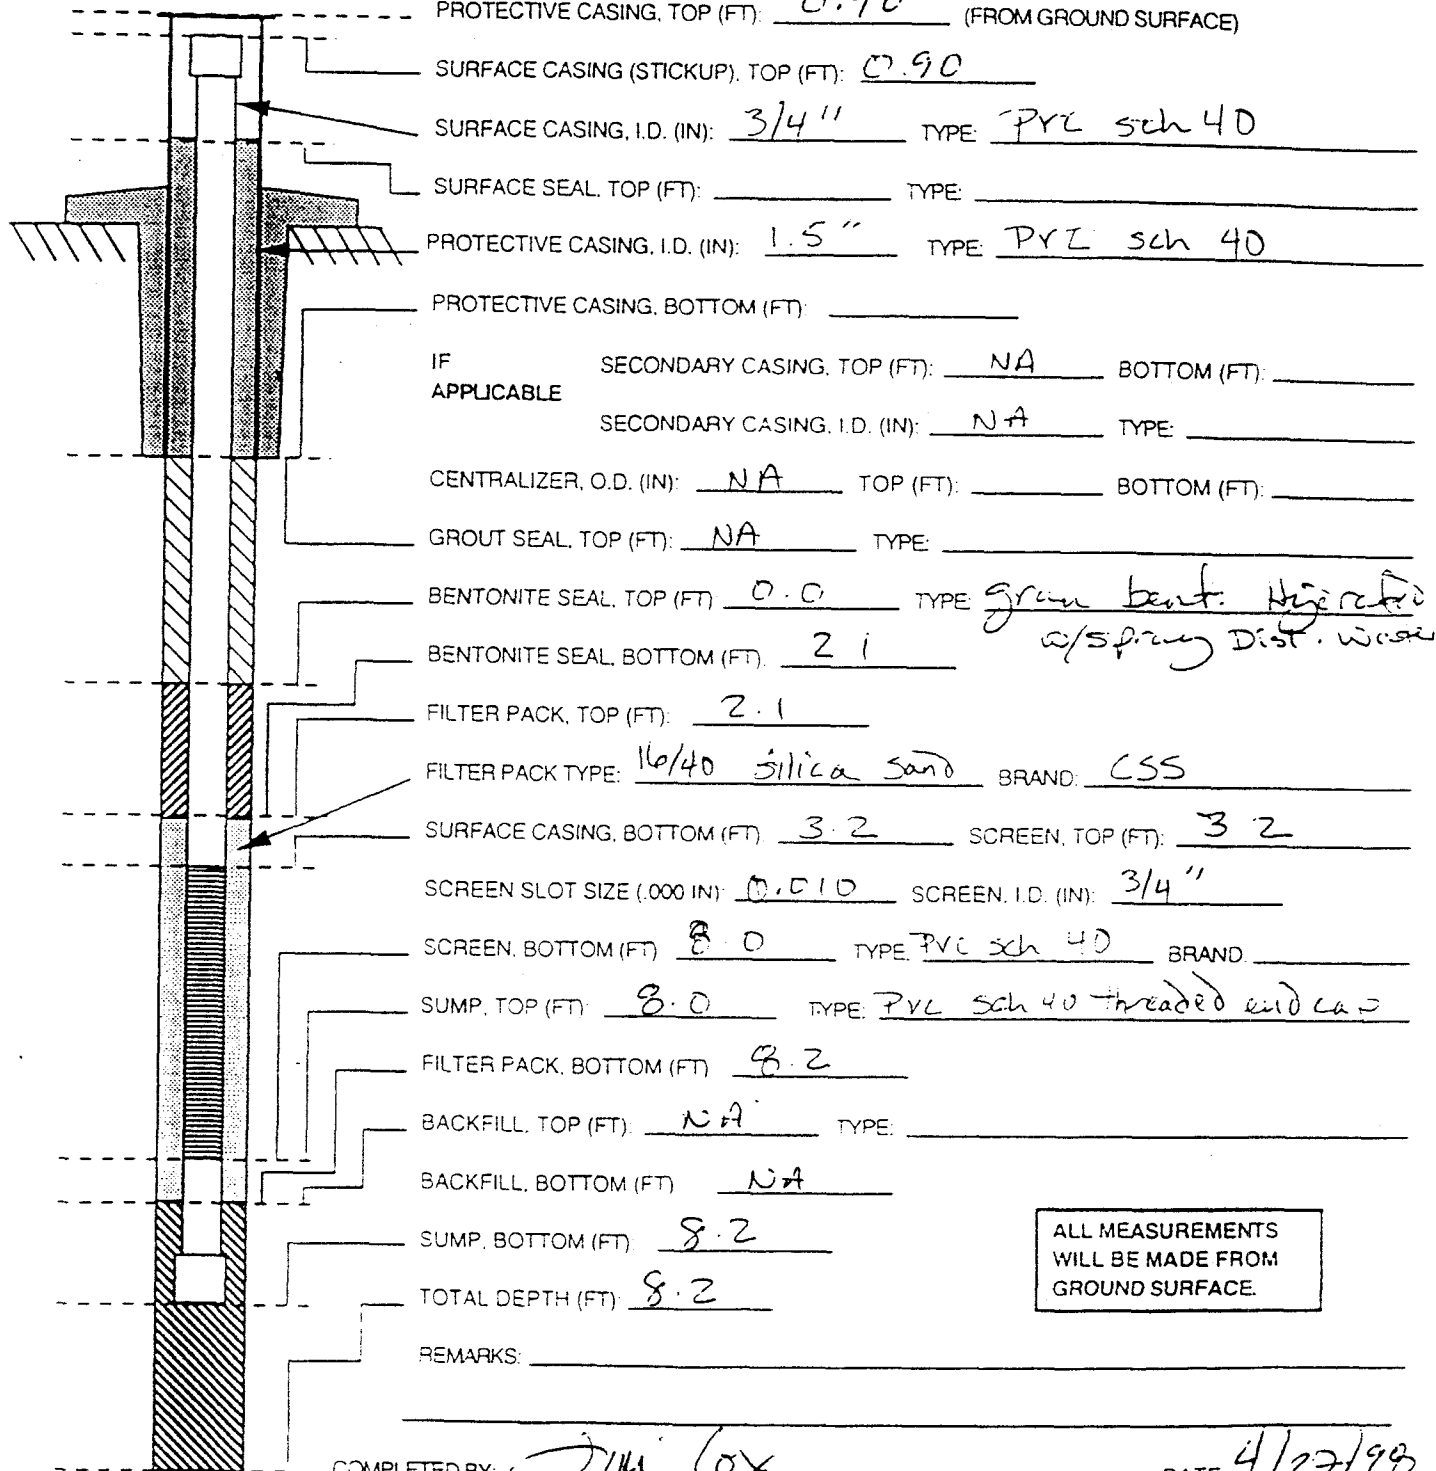 PROTECTIVE CASING, TOP (FT): (FROM GROUND SURFACE)
SURFACE CASING (STICKUP), TOP (FT): 0.90
SURFACE CASING, I.D. (IN): 3/4" TYPE: PVC sch 40
SURFACE SEAL, TOP (FT): TYPE:
PROTECTIVE CASING, I.D. (IN): 1.5" TYPE: PVC sch 40
PROTECTIVE CASING, BOTTOM (FT):
IF APPLICABLE
SECONDARY CASING, TOP (FT): NA BOTTOM (FT):
SECONDARY CASING, I.D. (IN): NA TYPE:
CENTRALIZER, O.D. (IN): NA TOP (FT): BOTTOM (FT):
GROUT SEAL, TOP (FT): NA TYPE:
BENTONITE SEAL, TOP (FT) 0.0 TYPE: gran bent.
w/ Dist.
BENTONITE SEAL, BOTTOM (FT). 2 1
FILTER PACK, TOP (FT): 2.1
FILTER PACK TYPE: 16/40 silica sand BRAND: CSS
SURFACE CASING, BOTTOM (FT) 3.2 SCREEN, TOP (FT): 3 2
SCREEN SLOT SIZE (.000 IN): 0.010 SCREEN, I.D. (IN): 3/4"
SCREEN, BOTTOM (FT) 8 0 TYPE: PVC sch 40 BRAND.
SUMP, TOP (FT) 8.0 TYPE: PVC sch 40 threaded end cap
FILTER PACK, BOTTOM (FT) 8.2
BACKFILL, TOP (FT): NA TYPE:
BACKFILL, BOTTOM (FT) NA
SUMP, BOTTOM (FT) 8.2
TOTAL DEPTH (FT) 8.2
ALL MEASUREMENTS
WILL BE MADE FROM
GROUND SURFACE.
REMARKS:
COMPLETED BY: Jim Cox DATE 4/27/98